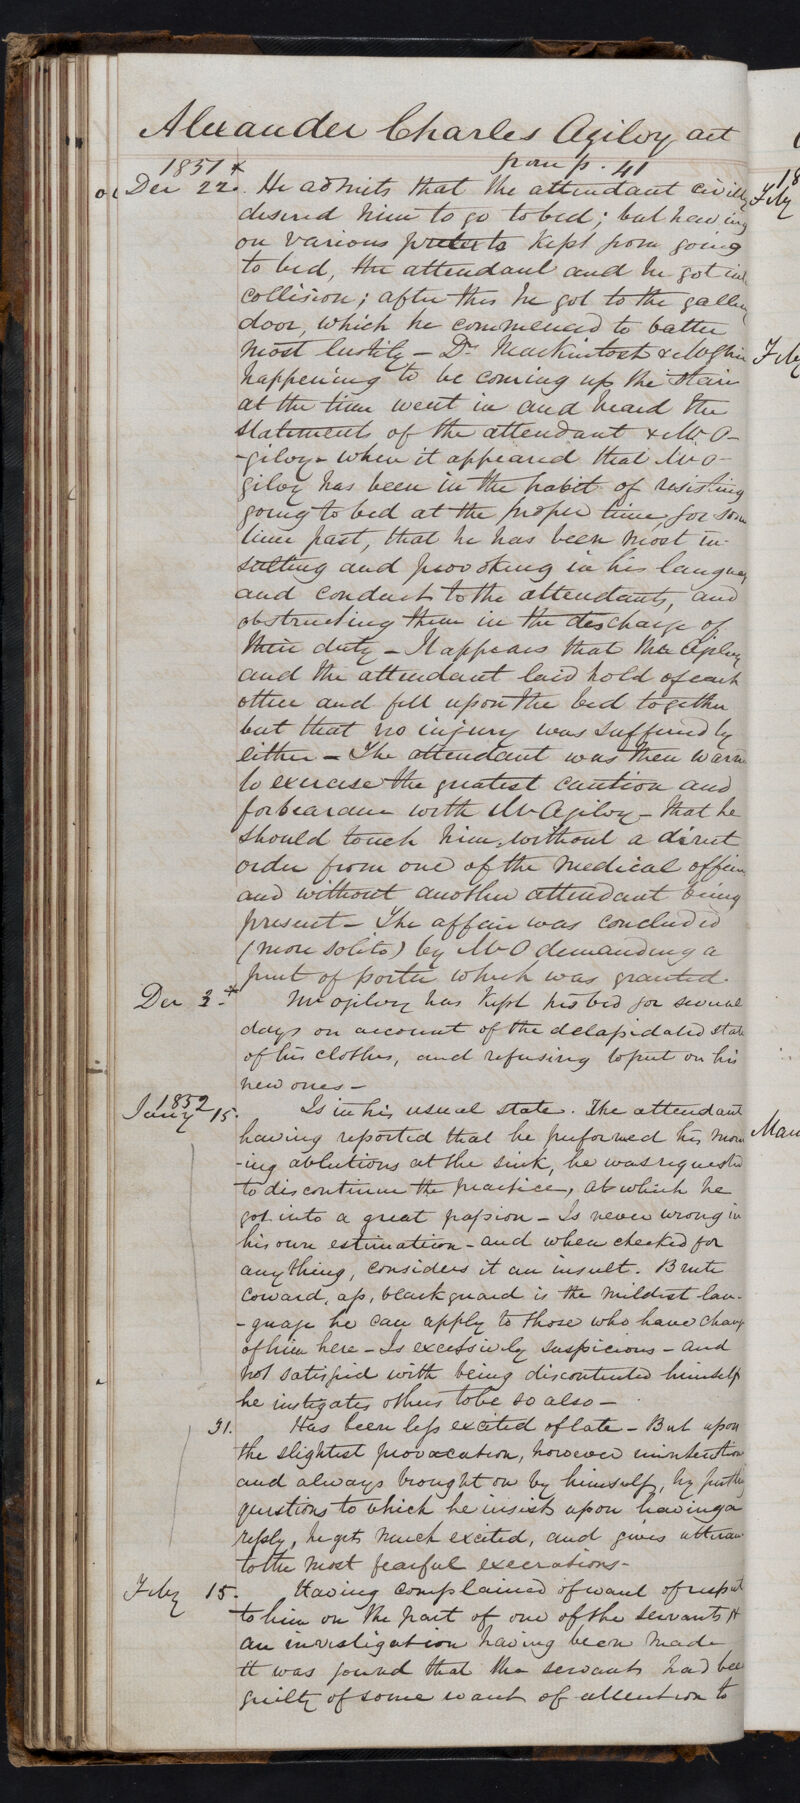 Alexander Charles Ogilvy aet
from p. 41
1851
Dec 22. He admits that the attendant civilly
desired him to go to bed; but having
on various pretexts kept from going
to bed, the attendant and he got into
collision; after this he got to the gallery
door, which he commenced to batter
most lustily – Dr Mackintosh &
happening to be coming up the stair
at the time went in and heard the
statements of the attendant & Mr O-
-gilvy – when it appeared that Mr O-
gilvy has been in the habit of resisting
going to bed at the proper time, for some
time past, that he has been most in-
sulting and provoking in his language
and conduct to the attendants, and
obstructing them in the discharge of
their duty – It appears that Mr Ogilvy
and the attendant laid hold of each
other and fell upon the bed together
but that no injury was suffered by
either – The attendant was then warned
to exercise the greatest caution and
forbearance with Mr Ogilvy – that he
should touch him, without a direct
order from one of the medical officers
and without another attendant being
present – The affair was concluded
(more solito) by Mr O demanding a
pint of porter which was granted.
Dec Mr Ogilvy has kept his bed for several
days on account of the delapidated state
of his clothes, and refusing to put on his
new ones –
1852
Jany 15. Is in his usual state. The attendant
having reported that he performed his morn
-ing ablutions at the sink, he was requested
to discontinue the practice, at which he
got into a great passion – Is never wrong in
his own estimation – and when checked for
anything, considers it an insult. Brute
coward, ass, blackguard is the mildest lan-
-guage he can apply to those who have charge
of him here – Is excessively suspicious – and
not satisfied with being discontented himself
he instigates others to be so also –
31. Has been less excited of late – But upon
the slightest provocation, however unintentional
and always brought on by himself, by putting
questions to which he insists upon having a
reply, he gets much excited, and gives utterance
to the most fearful execrations –
Feby 15. Having complained of want of respect
to him on the part of one of the servants &
an investigation having been made
it was found that the servants had been
guilty of some want of attention to
18
Feby
Feby